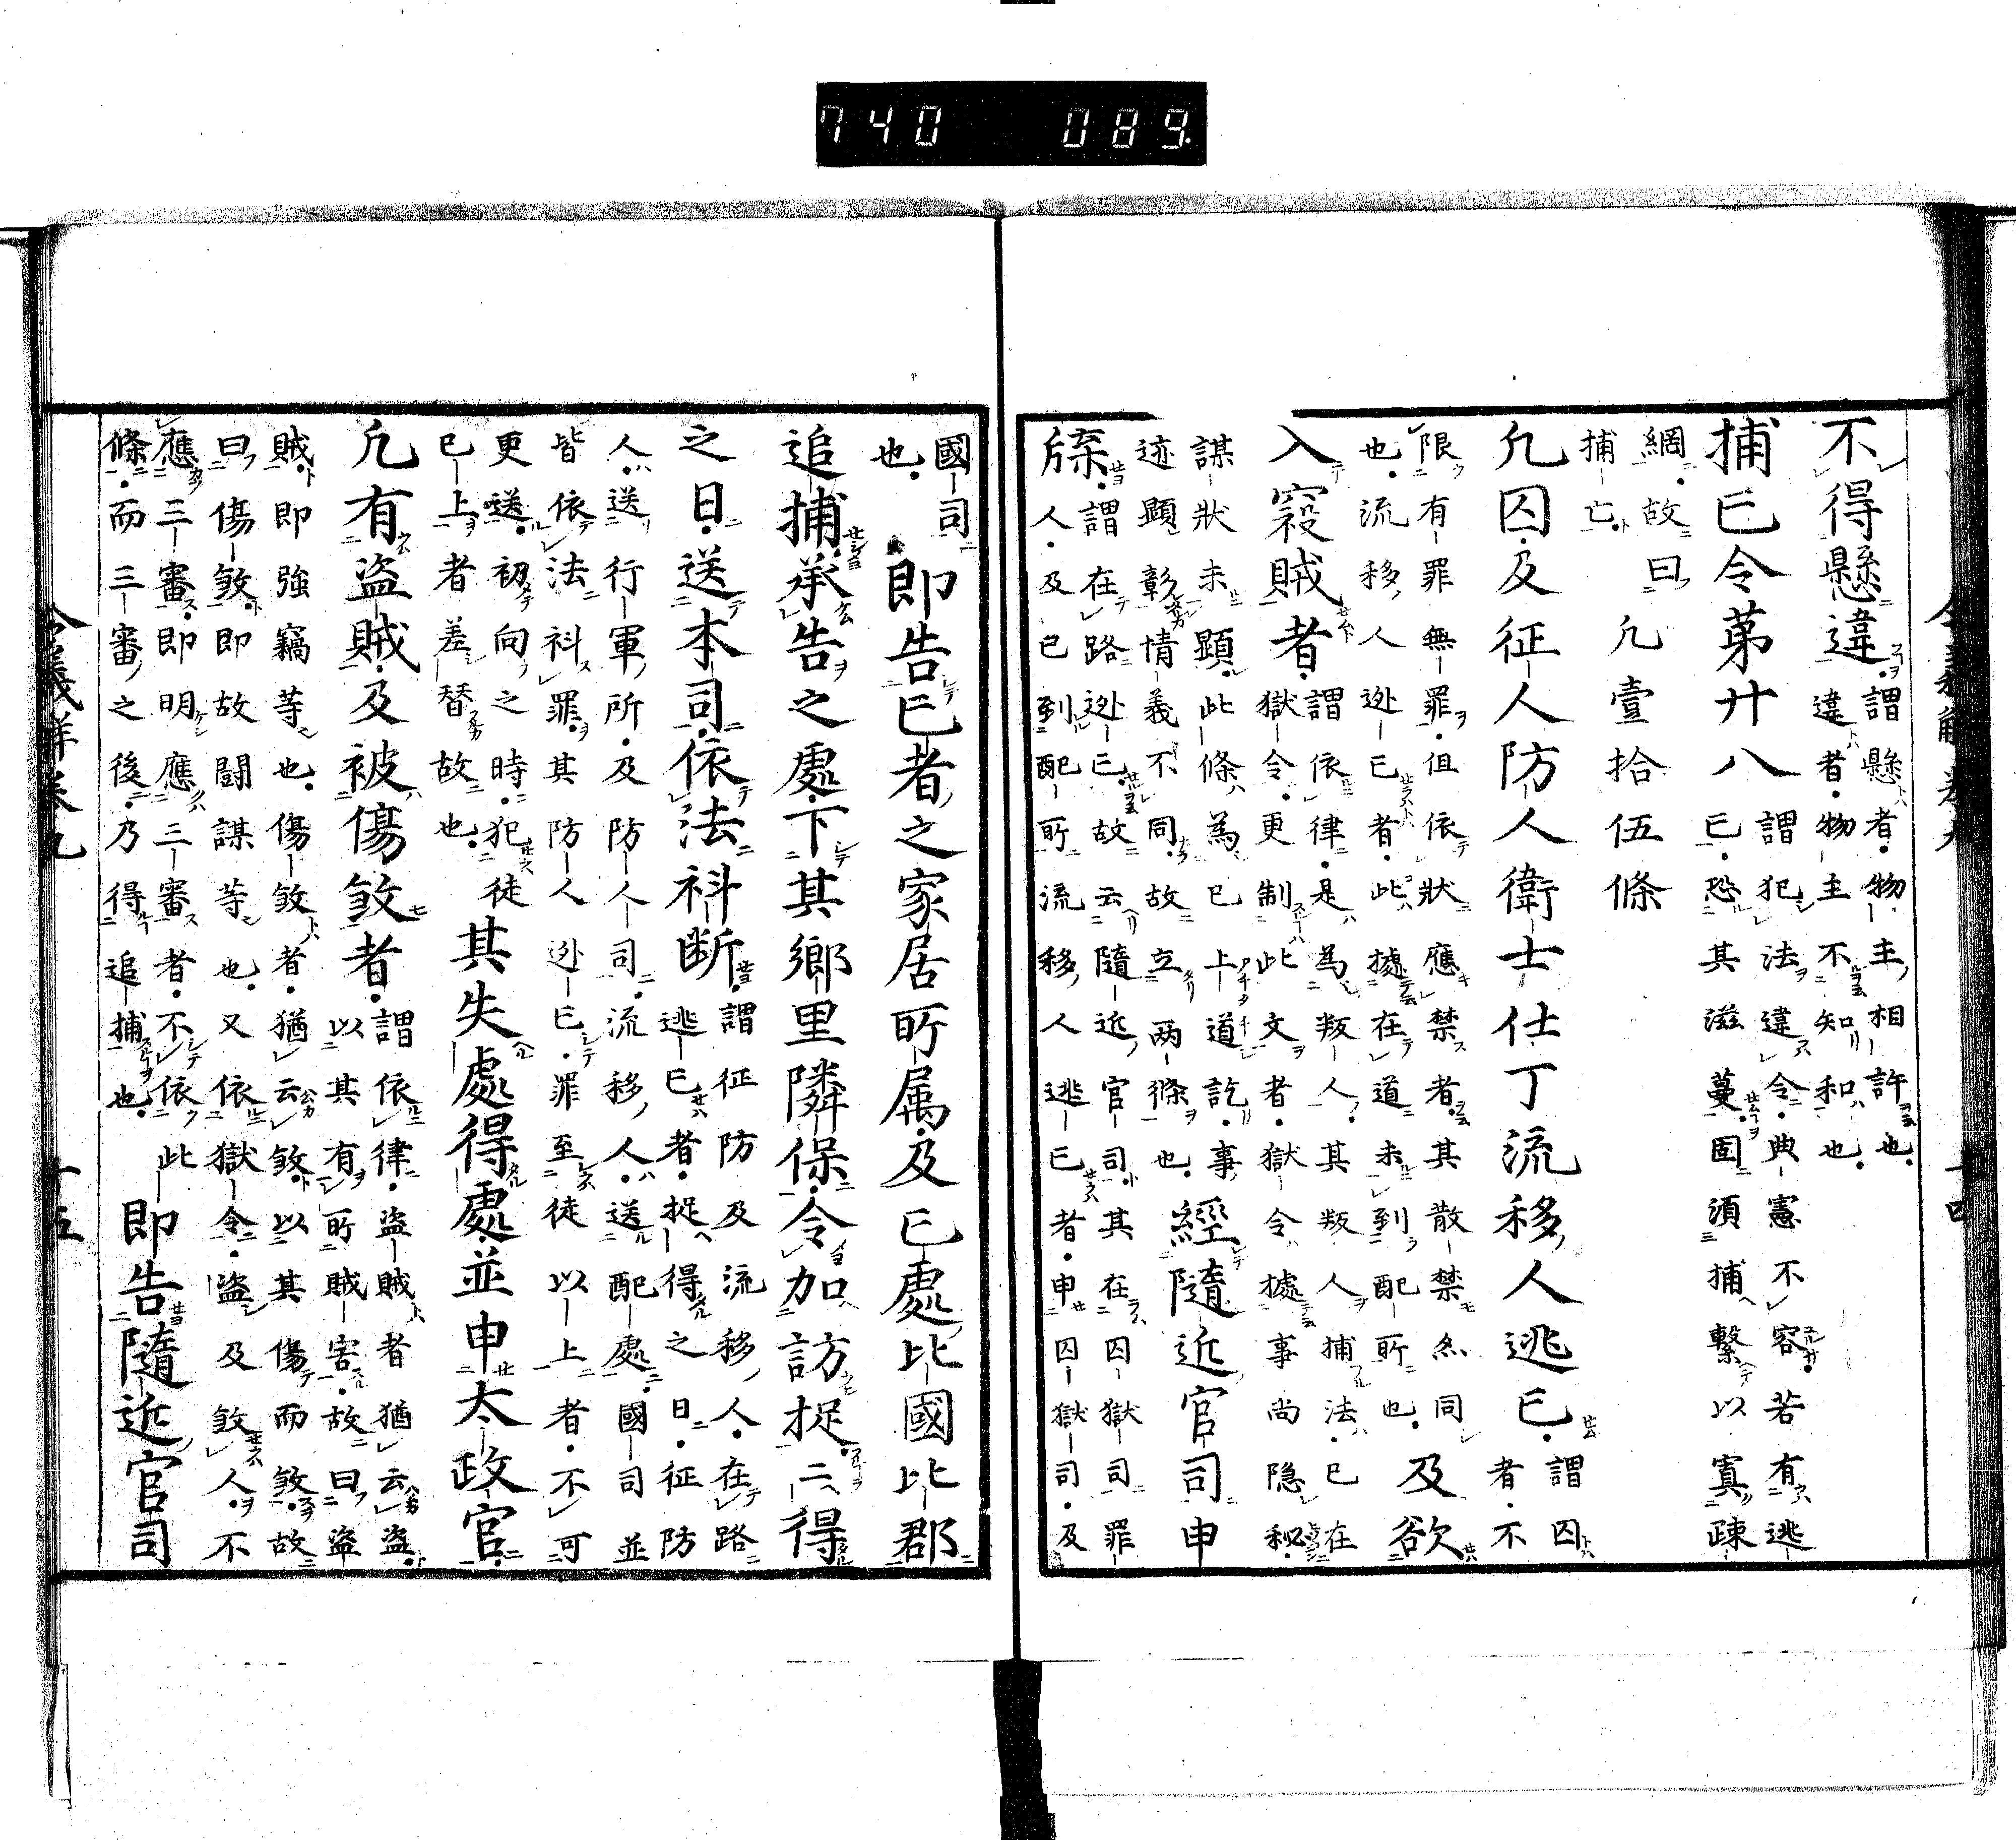 740 089
不得懸違
謂懸者物主相許也
違者物主不知和也
捕亡令第廿八
謂犯法違令典憲不容若有逃
亡恐其滋蔓固須捕繫以寘疎
網故曰
捕亡
凡壹拾伍條
凡囚及征人防人衛士仕丁流移人逃亡
謂囚
者不
限有罪無罪但依狀應禁者其散禁亦同
也流移人逃亡者此據在道未到配所也
及欲
入寇賊者
謂依律是為叛人其叛人捕法已在
獄令更制此文者獄令據事尚隱秘
謀狀未顯此條為已上道訖事
迹顯彰情義不同故立兩條也
經隨近官司申
牒
謂在路逃亡故云隨近官司其在囚獄司罪
人及已到配所流移人逃亡者申囚獄司及
國司
也
即告亡者之家居所属及亡處比國比郡
追捕承告之處下其鄉里隣保令加訪捉二得
之日送本司依法科断
謂征防及流移人在路
逃亡者捉得之日征防
人送行軍所及防人司流移人送配處國司並
皆依法科罪其防人逃亡罪至徒以上者不可
更送初向之時犯徒
已上者差替故也
其失處得處並申太政官
凡有盗賊及被傷煞者
謂依律盗賊者猶云盗
以其有所賊害故曰盗
賊即強竊等也傷煞者猶云煞以其傷而煞故
曰傷煞即故鬪謀等也又依獄令盗及煞人不
應三審即明應三審者不依此
條而三審之後乃得追捕也
即告隨近官司